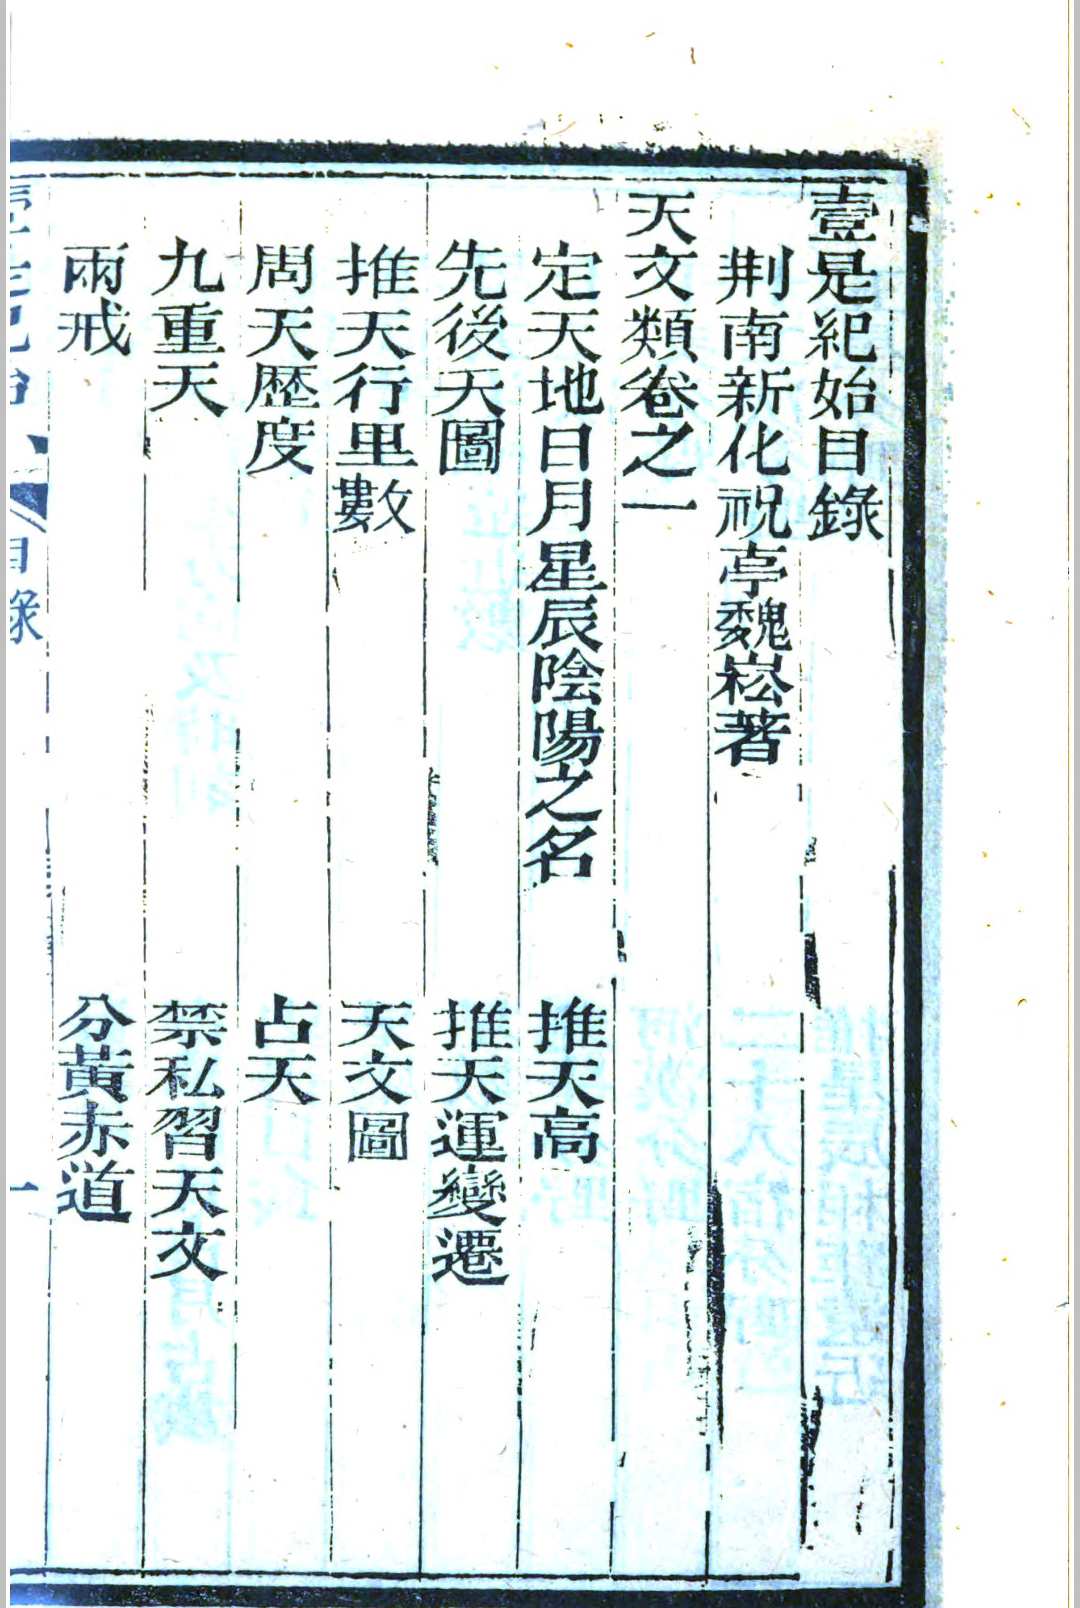 壹是紀始目錄
荆南新化祝亭魏崧著
天文類卷之一
定天地日月星辰陰陽之名　推天高
先後天圖　推天運變遷
推天行里數　天文圖
周天歷度　占天
九重天　禁私習天文
兩戒　分黃赤道
目錄
一